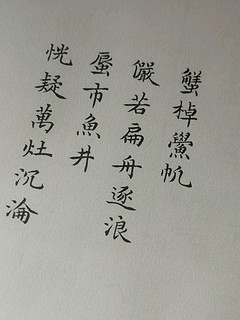 蟹棹鱟帆
儼若扁舟逐浪
蜃市魚井
恍疑萬灶沉淪